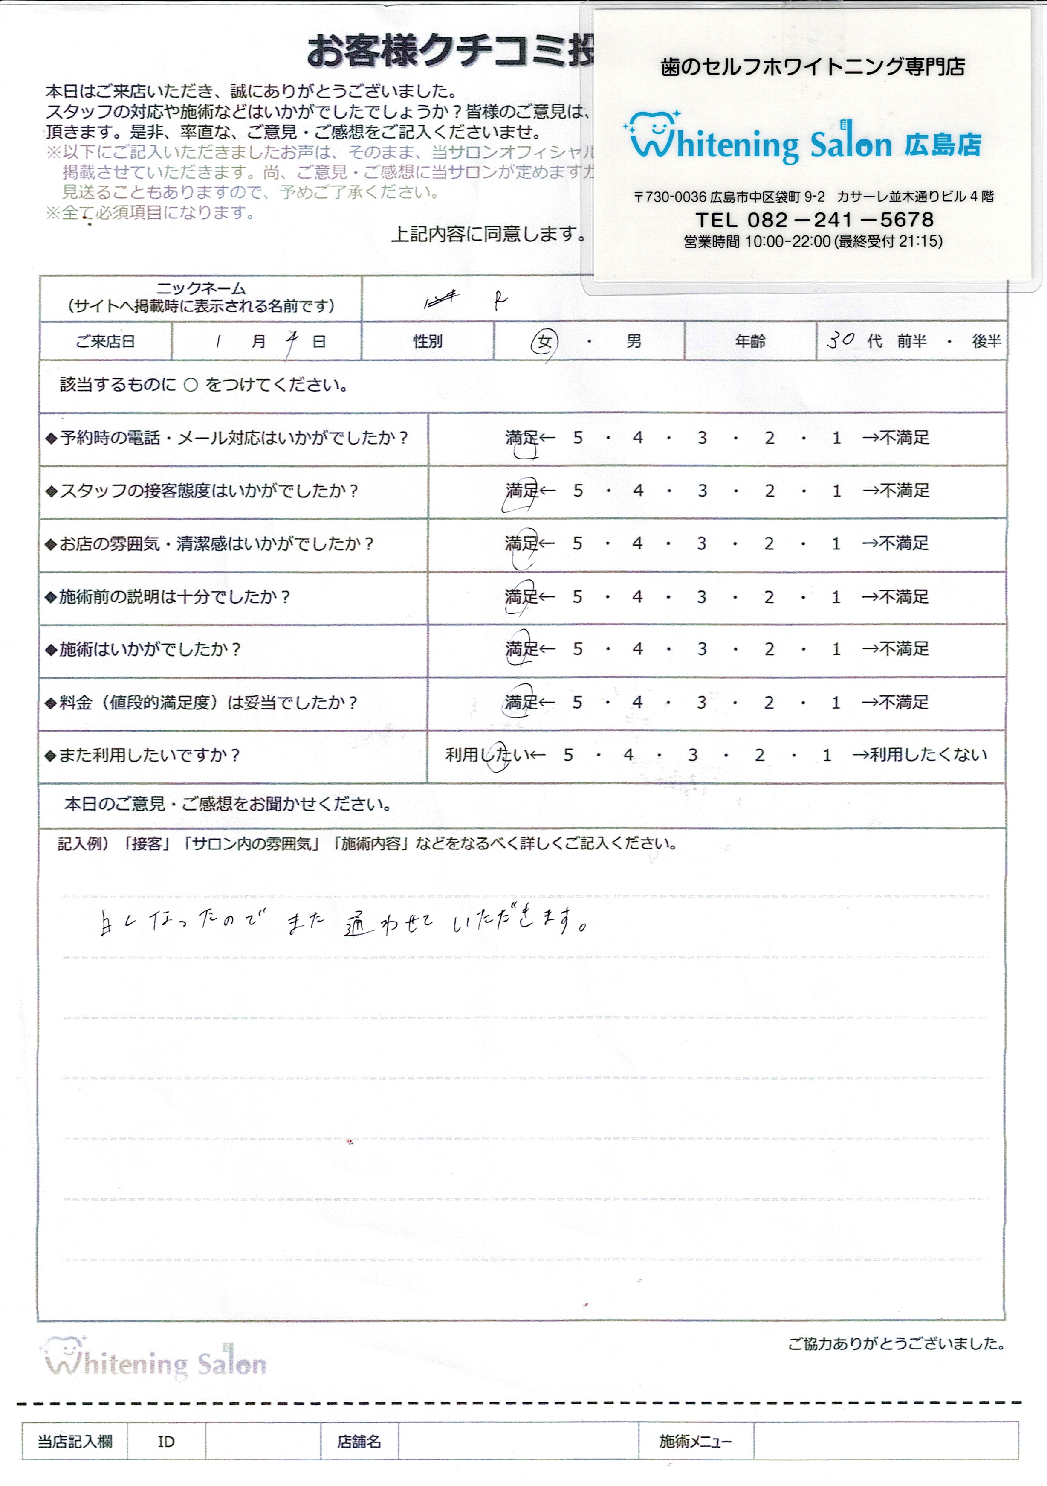 お客様クチコミ投
本日はご来店いただき、誠にありがとうございました。
スタッフの対応や施術などはいかがでしたでしょうか？皆様のご意見は、
頂きます。是非、率直な、ご意見・ご感想をご記入くださいませ。
※以下にご記入いただきましたお声は、そのまま、当サロンオフィシャル
掲載させていただきます。尚、ご意見・ご感想に当サロンが定めますガ
見送ることもありますので、予めご了承ください。
※全て必須項目になります。
上記内容に同意します。
歯のセルフホワイトニング専門店
Whitening Salon 広島店
〒730-0036 広島市中区袋町 9-2 カサーレ並木通りビル 4 階
TEL 082－241－5678
営業時間 10:00-22:00 (最終受付 21:15)
ニックネーム
（サイトへ掲載時に表示される名前です）
ご来店日 1 月 4 日 性別 女 ・ 男 年齢 30 代 前半 ・ 後半
該当するものに ○ をつけてください。
◆予約時の電話・メール対応はいかがでしたか？ 満足← 5 ・ 4 ・ 3 ・ 2 ・ 1 →不満足
◆スタッフの接客態度はいかがでしたか？ 満足← 5 ・ 4 ・ 3 ・ 2 ・ 1 →不満足
◆お店の雰囲気・清潔感はいかがでしたか？ 満足← 5 ・ 4 ・ 3 ・ 2 ・ 1 →不満足
◆施術前の説明は十分でしたか？ 満足← 5 ・ 4 ・ 3 ・ 2 ・ 1 →不満足
◆施術はいかがでしたか？ 満足← 5 ・ 4 ・ 3 ・ 2 ・ 1 →不満足
◆料金（値段的満足度）は妥当でしたか？ 満足← 5 ・ 4 ・ 3 ・ 2 ・ 1 →不満足
◆また利用したいですか？ 利用したい← 5 ・ 4 ・ 3 ・ 2 ・ 1 →利用したくない
本日のご意見・ご感想をお聞かせください。
記入例）「接客」「サロン内の雰囲気」「施術内容」などをなるべく詳しくご記入ください。
白くなったので また 通わせて いただきます。
ご協力ありがとうございました。
Whitening Salon
当店記入欄 ID 店舗名 施術メニュー